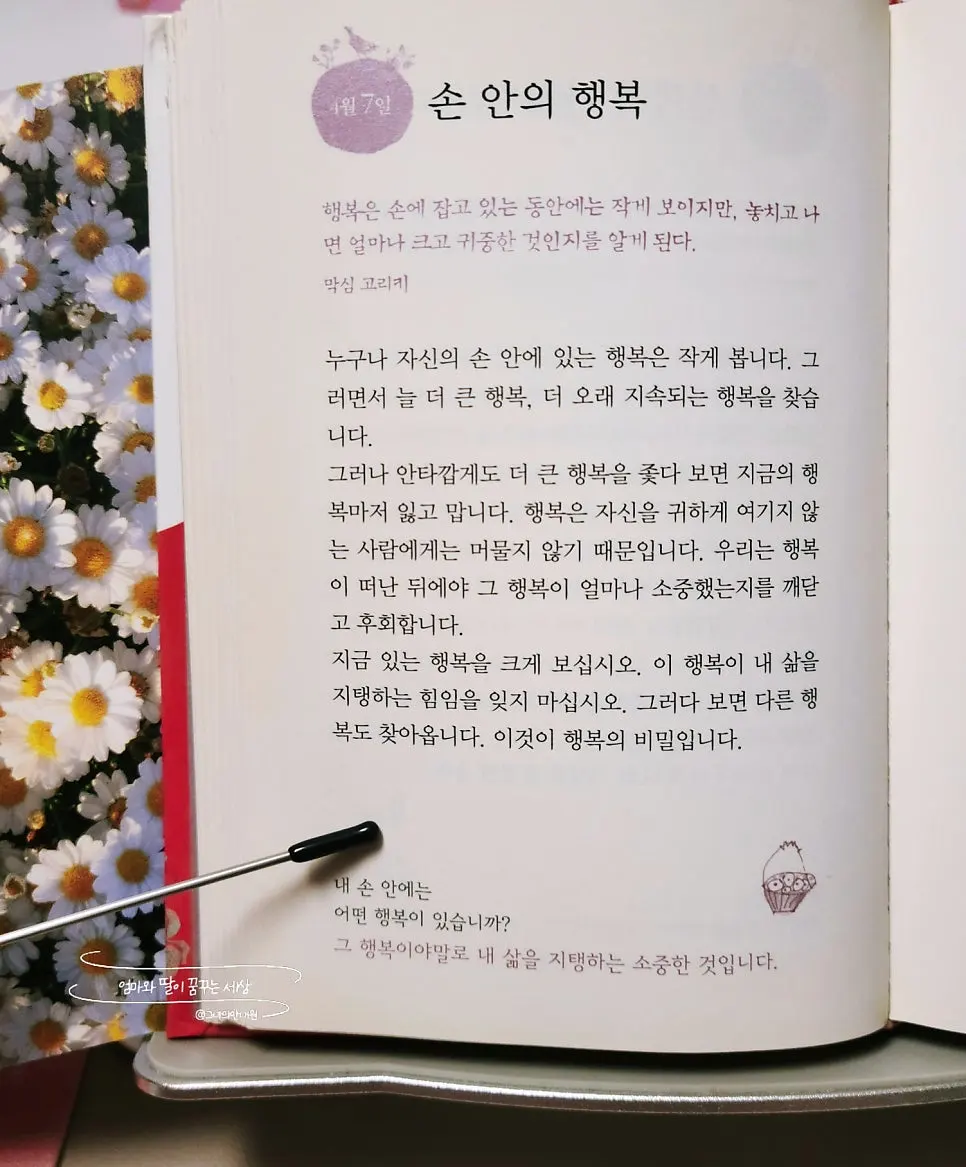 4월 7일
손 안의 행복
행복은 손에 잡고 있는 동안에는 작게 보이지만, 놓치고 나
면 얼마나 크고 귀중한 것인지를 알게 된다.
막심 고리키
누구나 자신의 손 안에 있는 행복은 작게 봅니다. 그
러면서 늘 더 큰 행복, 더 오래 지속되는 행복을 찾습
니다.
그러나 안타깝게도 더 큰 행복을 좇다 보면 지금의 행
복마저 잃고 맙니다. 행복은 자신을 귀하게 여기지 않
는 사람에게는 머물지 않기 때문입니다. 우리는 행복
이 떠난 뒤에야 그 행복이 얼마나 소중했는지를 깨닫
고 후회합니다.
지금 있는 행복을 크게 보십시오. 이 행복이 내 삶을
지탱하는 힘임을 잊지 마십시오. 그러다 보면 다른 행
복도 찾아옵니다. 이것이 행복의 비밀입니다.
내 손 안에는
어떤 행복이 있습니까?
그 행복이야말로 내 삶을 지탱하는 소중한 것입니다.
엄마와 딸이 꿈꾸는 세상